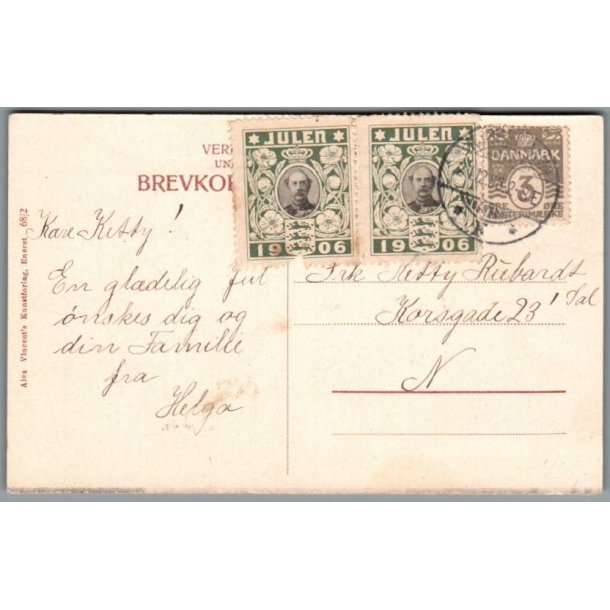 VER
UN
BREVKO
JULEN
1906
JULEN
1906
DANMARK
3
Kære Ketty!
En glædelig Jul
ønskes dig og
din Familie
fra
Helga
Frk Netty Rübardt
Korsgade 23' Sal
N
Alex Vincent's Kunstforlag, Eneret 68/2